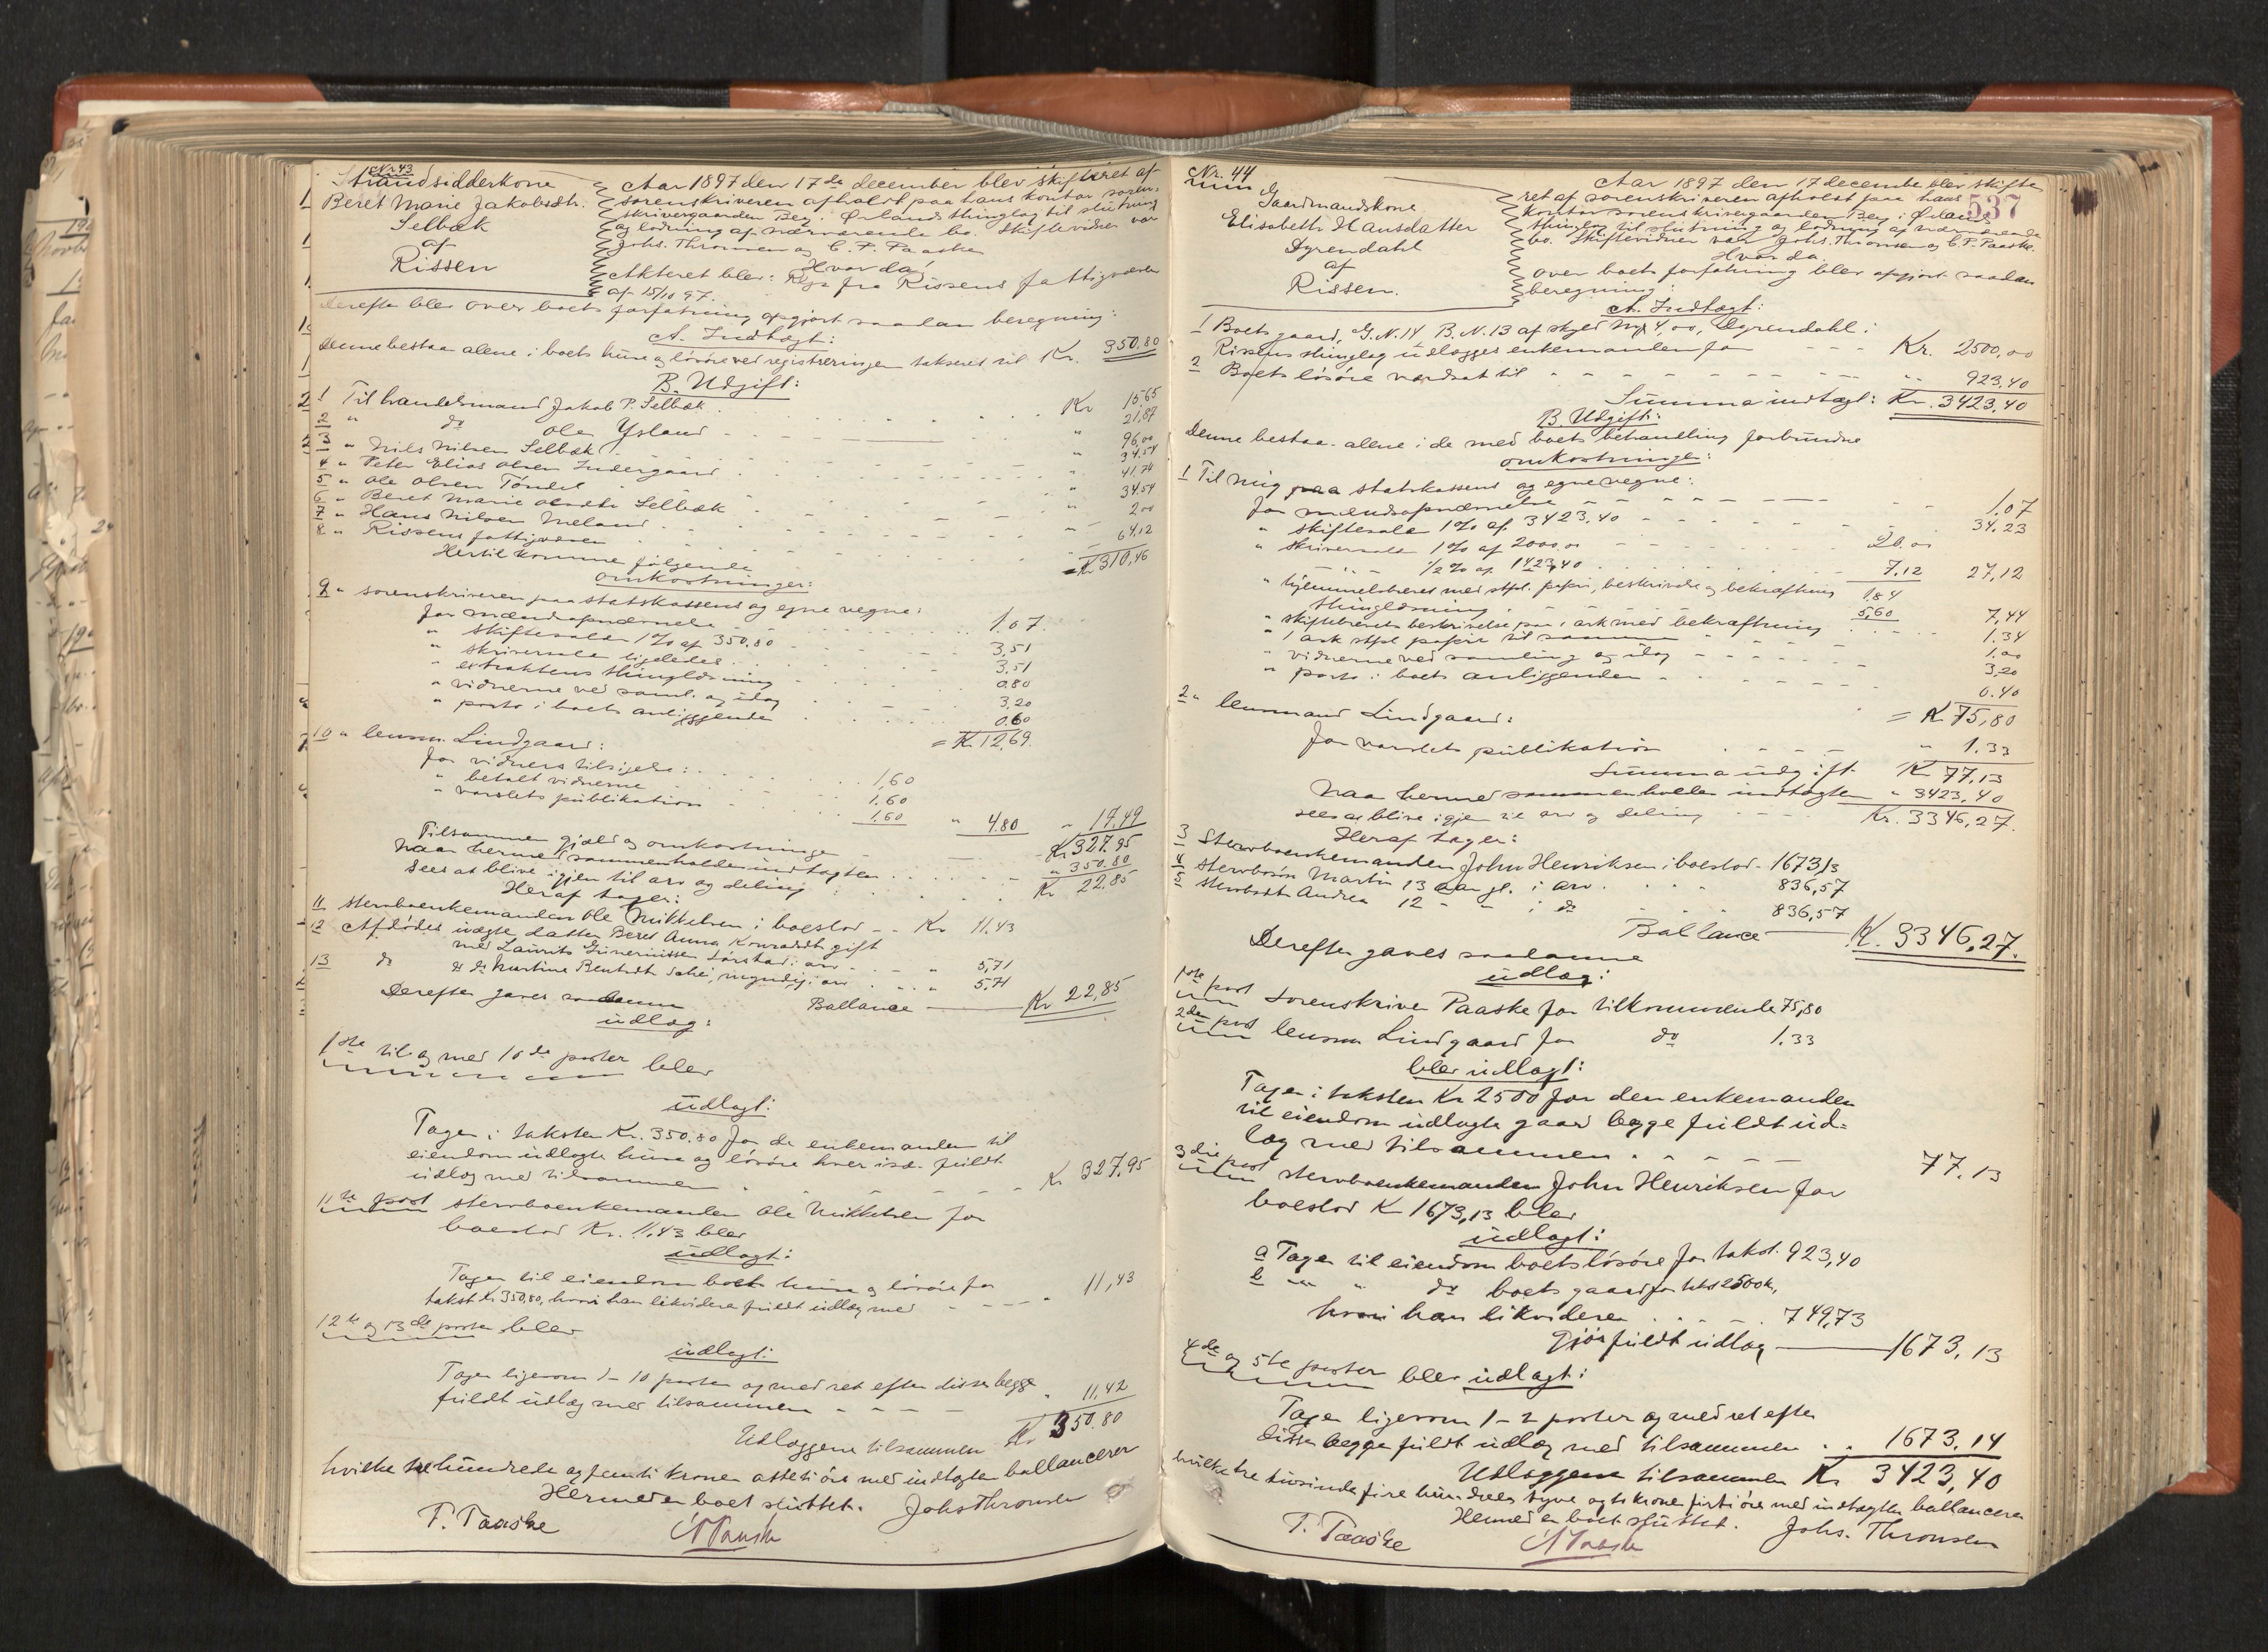 Nr. 43
Strandsidderkone
Beret Marie Jakobsdtr.
Selbæk
af
Rissen
Aar 1897 den 17de december blev skifteret af
sorenskriveren afholdt paa hans kontor soren-
skrivergaarden Bey i Ørlands thinglag til slutning
og lodning af nærværende bo. Skiftevidner var
Johs. Thronsen og C. F. Paaske
Hvor da
Akteret blev: Regn fra Rissens fattigvæsen
af 15/10 97.
Derefter blev over boets forfatning opgjort saadan beregning:
A. Indtægt:
Denne bestaar alene i boets huse og løsøre ved registreringen takseret til Kr. 350.80
B. Udgift:
1 Til handelsmand Jakob P. Selbæk Kr 15.65
2 " do Ole Ysland " 21,87
3 " Nils Nilsen Selbæk " 96,00
4 " Peter Elias Olsen Indergaard " 34.54
5 " Ole Olsen Tøndel " 41.74
6 " Beret Marie Olsdtr Selbæk " 34.54
7 " Hans Nilsen Meland " 2 00
8 " Rissens fattigvæsen " 64.12
Hertil komme følgende = Kr 310,46
omkostninger:
9 " sorenskriveren paa statskassens og egne vegne:
for mændsopnævnelse 1.07
" skiftesalær 1% af 350.80 3,51
" skriversalær ligeledes 3.51
" extraktens thinglæsning 0.80
" vidnerne ved saml. og idag 3,20
" porto i boets anliggender 0.60
= Kr 12,69.
10 " lensm. Lindgaard:
for vidners tilsigelse: 1,60
" betalt vidnerne 1.60
" varslets publikation 1,60 " 4.80 " 17.49
Tilsammen gjæld og omkostninger Kr 327.95
Naar hermed sammenholdes indtægten " 350.80
sees at blive igjen til arv og deling Kr 22,85
Heraf tager:
11 stervboenkemanden Ole Mikkelsen i boeslod Kr 11.43
12 Afdødes uægte datter Beret Anna Konradsdt gift
med Laurits Guneriussen Sørstad i arv " 5,71
13 do do do Martine Bentsdt Schei, myndig i arv " 5.71
Derefter gaves saadanne Ballance Kr 22,85
udlæg:
1ste til og med 10de poster blev
udlagt:
Tager i taksten Kr. 350.80 for de enkemanden til
eiendom udlagte huse og løsøre hver især fuldt
udlæg med tilsammen Kr 327,95
11te post stervboenkemanden Ole Mikkelsen for
boeslod Kr. 11,43 blev
udlagt:
Tager til eiendom boets huse og løsøre for
takst Kr 350,80, hvori han likviderer fuldt udlæg med " 11,43
12te og 13de poster blev
udlagt:
Tager ligesom 1-10 poster og med ret efter disse begge
fuldt udlæg med tilsammen " 11,42
Udlæggene tilsammen Kr 350.80
hvilke tre hundrede og femti kroner otteti øre med indtægten ballancerer
Hermed er boet sluttet. Johs Thronsen
F. Paaske
C F Paaske
Nr. 44
Gaardmandskone
Elisabeth Hansdatter
Dyrendahl
af
Rissen.
537
Aar 1897 den 17 decembe blev skifte
ret af sorenskriveren afholdt paa hans
kontor sorenskrivergaarden Bey i Ørlands
thinglag til slutning og lodning af nærværende
bo. Skiftevidner var Johs. Thronsen og C. F. Paaske.
Hvor da
over boets forfatning blev opgjort saadan
beregning:
A. Indtægt:
1 Boets gaard, G.N. 14 B.N. 13 af skyld Mrk 4,00, Dyrendahl i
Rissens thinglag udlægges enkemanden for Kr. 2500,00
2 Boets løsøre værdsat til " 923,40
Summa indtægt: Kr. 3423,40
B Udgift:
Denne bestaar alene i de med boets behandling forbundne
omkostninger:
1 Til mig paa statskassens og egne vegne:
for mændsopnævnelse 1.07
" skiftesalær 1% af 3423,40 34.23
" skriversalær 1% af 2000.00 20.00
" " 1/2% af 1423,40 7.12 27,12
" hjemmelsbrevet med stpl. papir, beskrivelse og bekræftning 1.84
thinglæsning 5,60 7,44
" skiftebrevets beskrivelse paa 1 ark med bekræftning 1.34
" 1 ark stpl papir til samme 1.00
" vidnerne ved samling og idag 3,20
" porto i boets anliggender 0.40
= Kr 75,80
2 " lensmand Lindgaard:
for varslets publikation " 1.33
Summa udgift Kr 77,13
Naar hermed sammenholdes indtægten " 3423,40
sees at blive igjen til arv og deling Kr. 3346,27.
Heraf tager:
3 Stervboenkemanden John Henriksen i boeslod 1673,13
4 stervbosøn Martin 13 aar gl. i arv 836,57
5 stervbodt Andrea 12 " " i do 836,57
Ballance Kr. 3346,27.
Derefter gaves saadanne
udlæg:
1ste post Sorenskriver Paaske for tilkommende 75,80
2den post lensm Lindgaard for do 1.33
blev udlagt:
Tager i taksten Kr 2500 for den enkemanden
til eiendom udlagte gaard begge fuldt ud-
læg med tilsammen 77.13
3die post stervboenkemanden John Henriksen for
boeslod Kr 1673,13 blev
udlagt:
a Tager til eiendom boets løsøre for takst. 923,40
b " " do boets gaard for takst 2500 kr,
hvori han likviderer 749,73
gjør fuldt udlæg 1673,13
4de og 5te poster blev udlagt:
Tager ligesom 1-2 poster og med ret efter
disse begge fuldt udlæg med tilsammen 1673.14
Udlæggene tilsammen Kr 3423,40
hvilke tre tusinde fire hundrede tyve og tre kroner firti øre med indtægten ballancerer
Hermed er boet sluttet. Johs. Thronsen
F. Paaske
C F Paaske